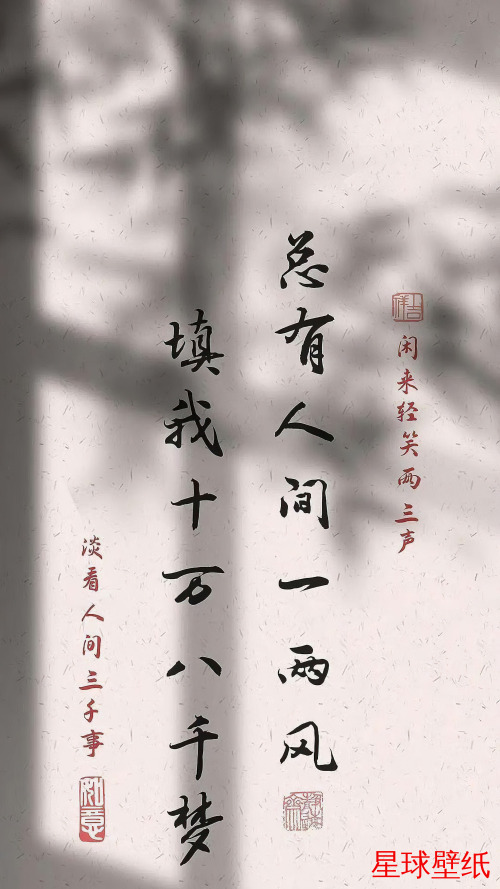 吉祥
闲来轻笑两三声
总有人间一两风
填我十万八千梦
淡看人间三千事
如意
星球壁纸